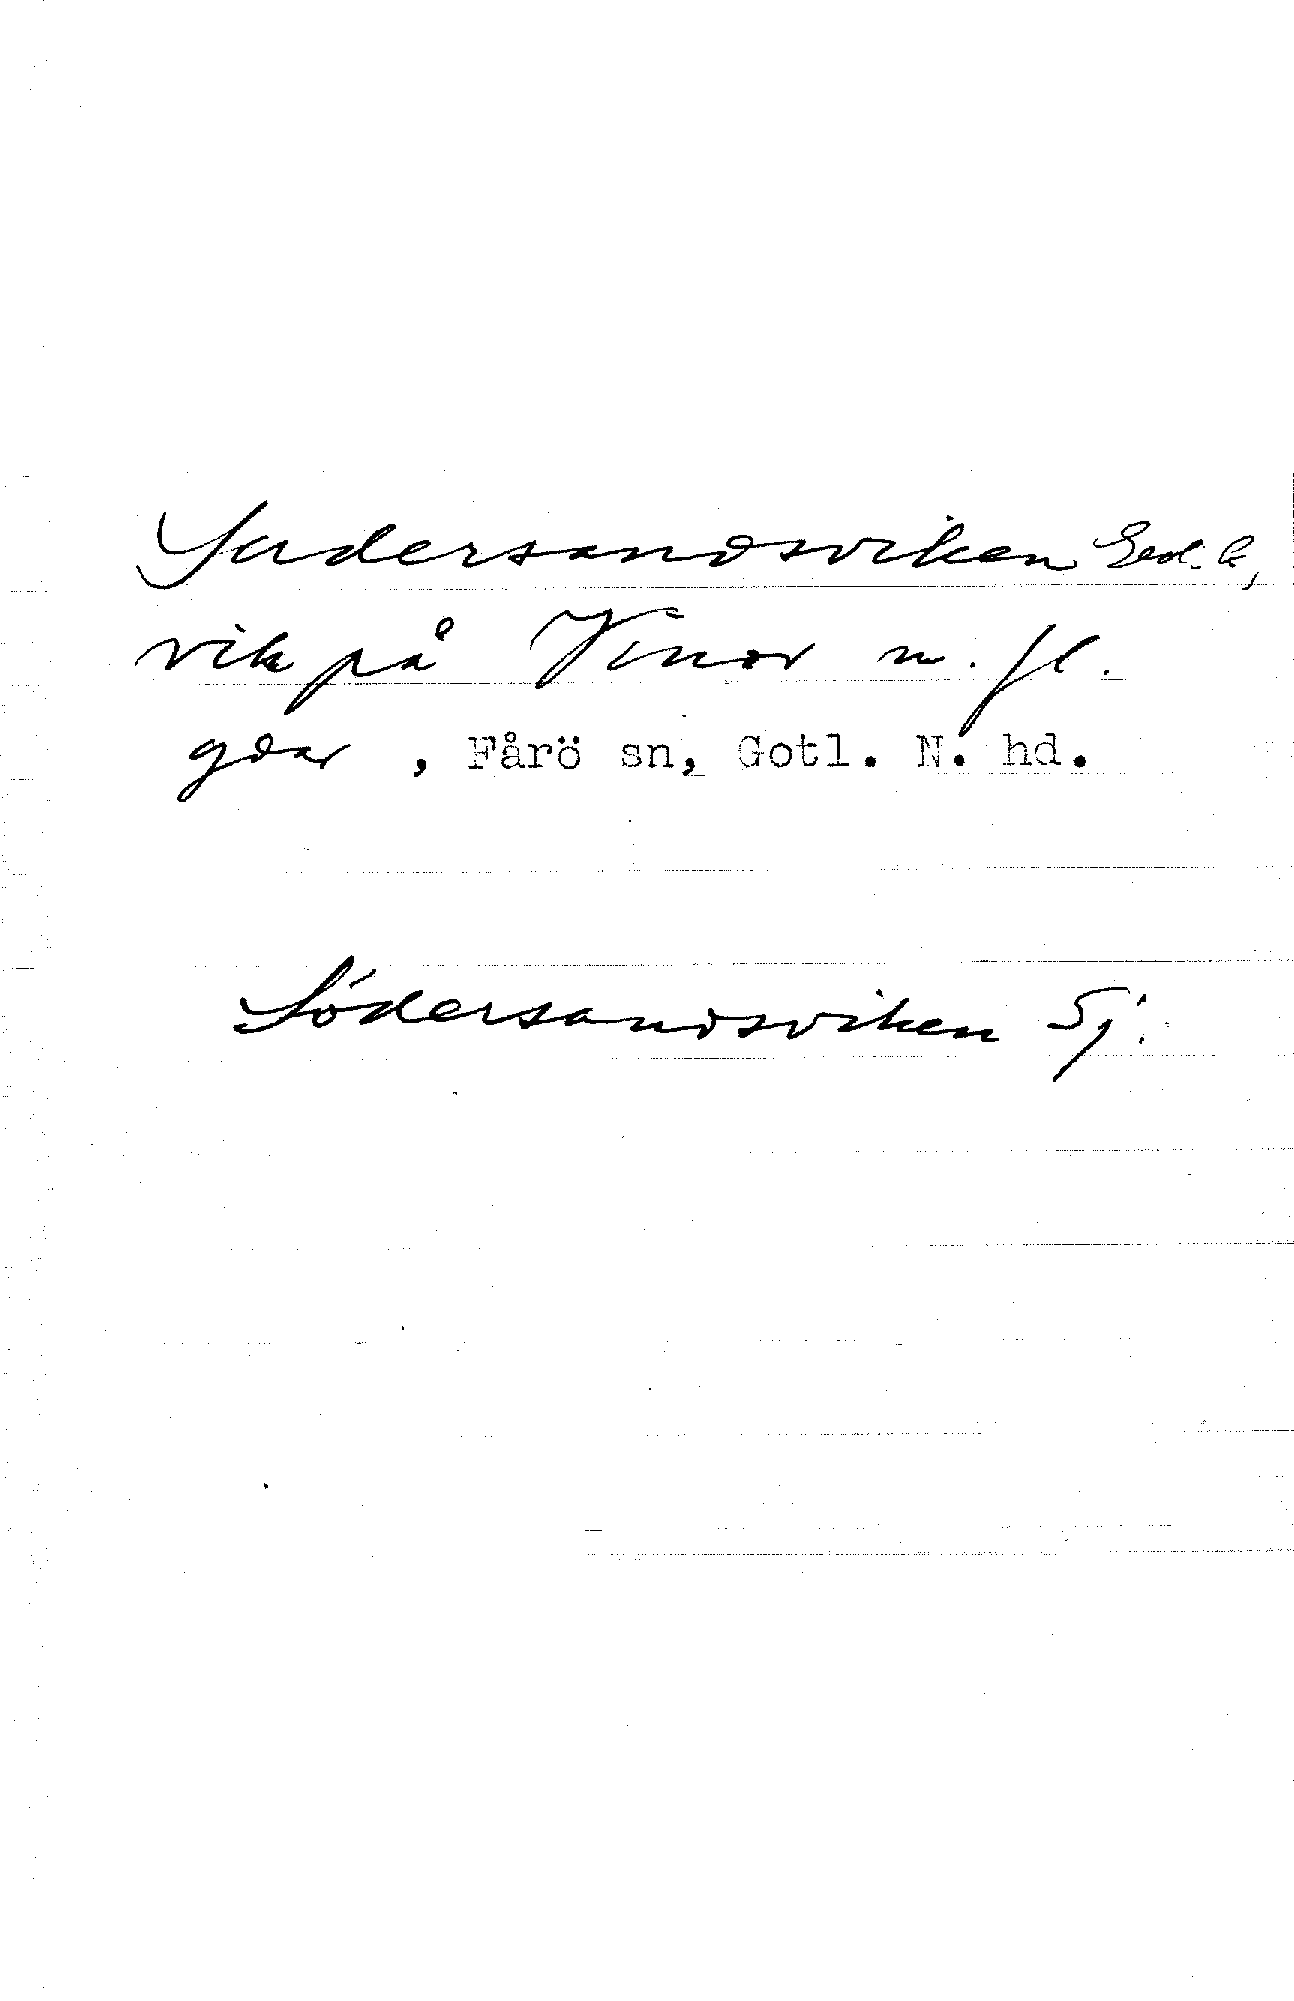 Sudersandsviken Geol. k,
vik på Vinor m. fl.
gdar, Fårö sn, Gotl. N. hd.
Södersandsviken Sj.